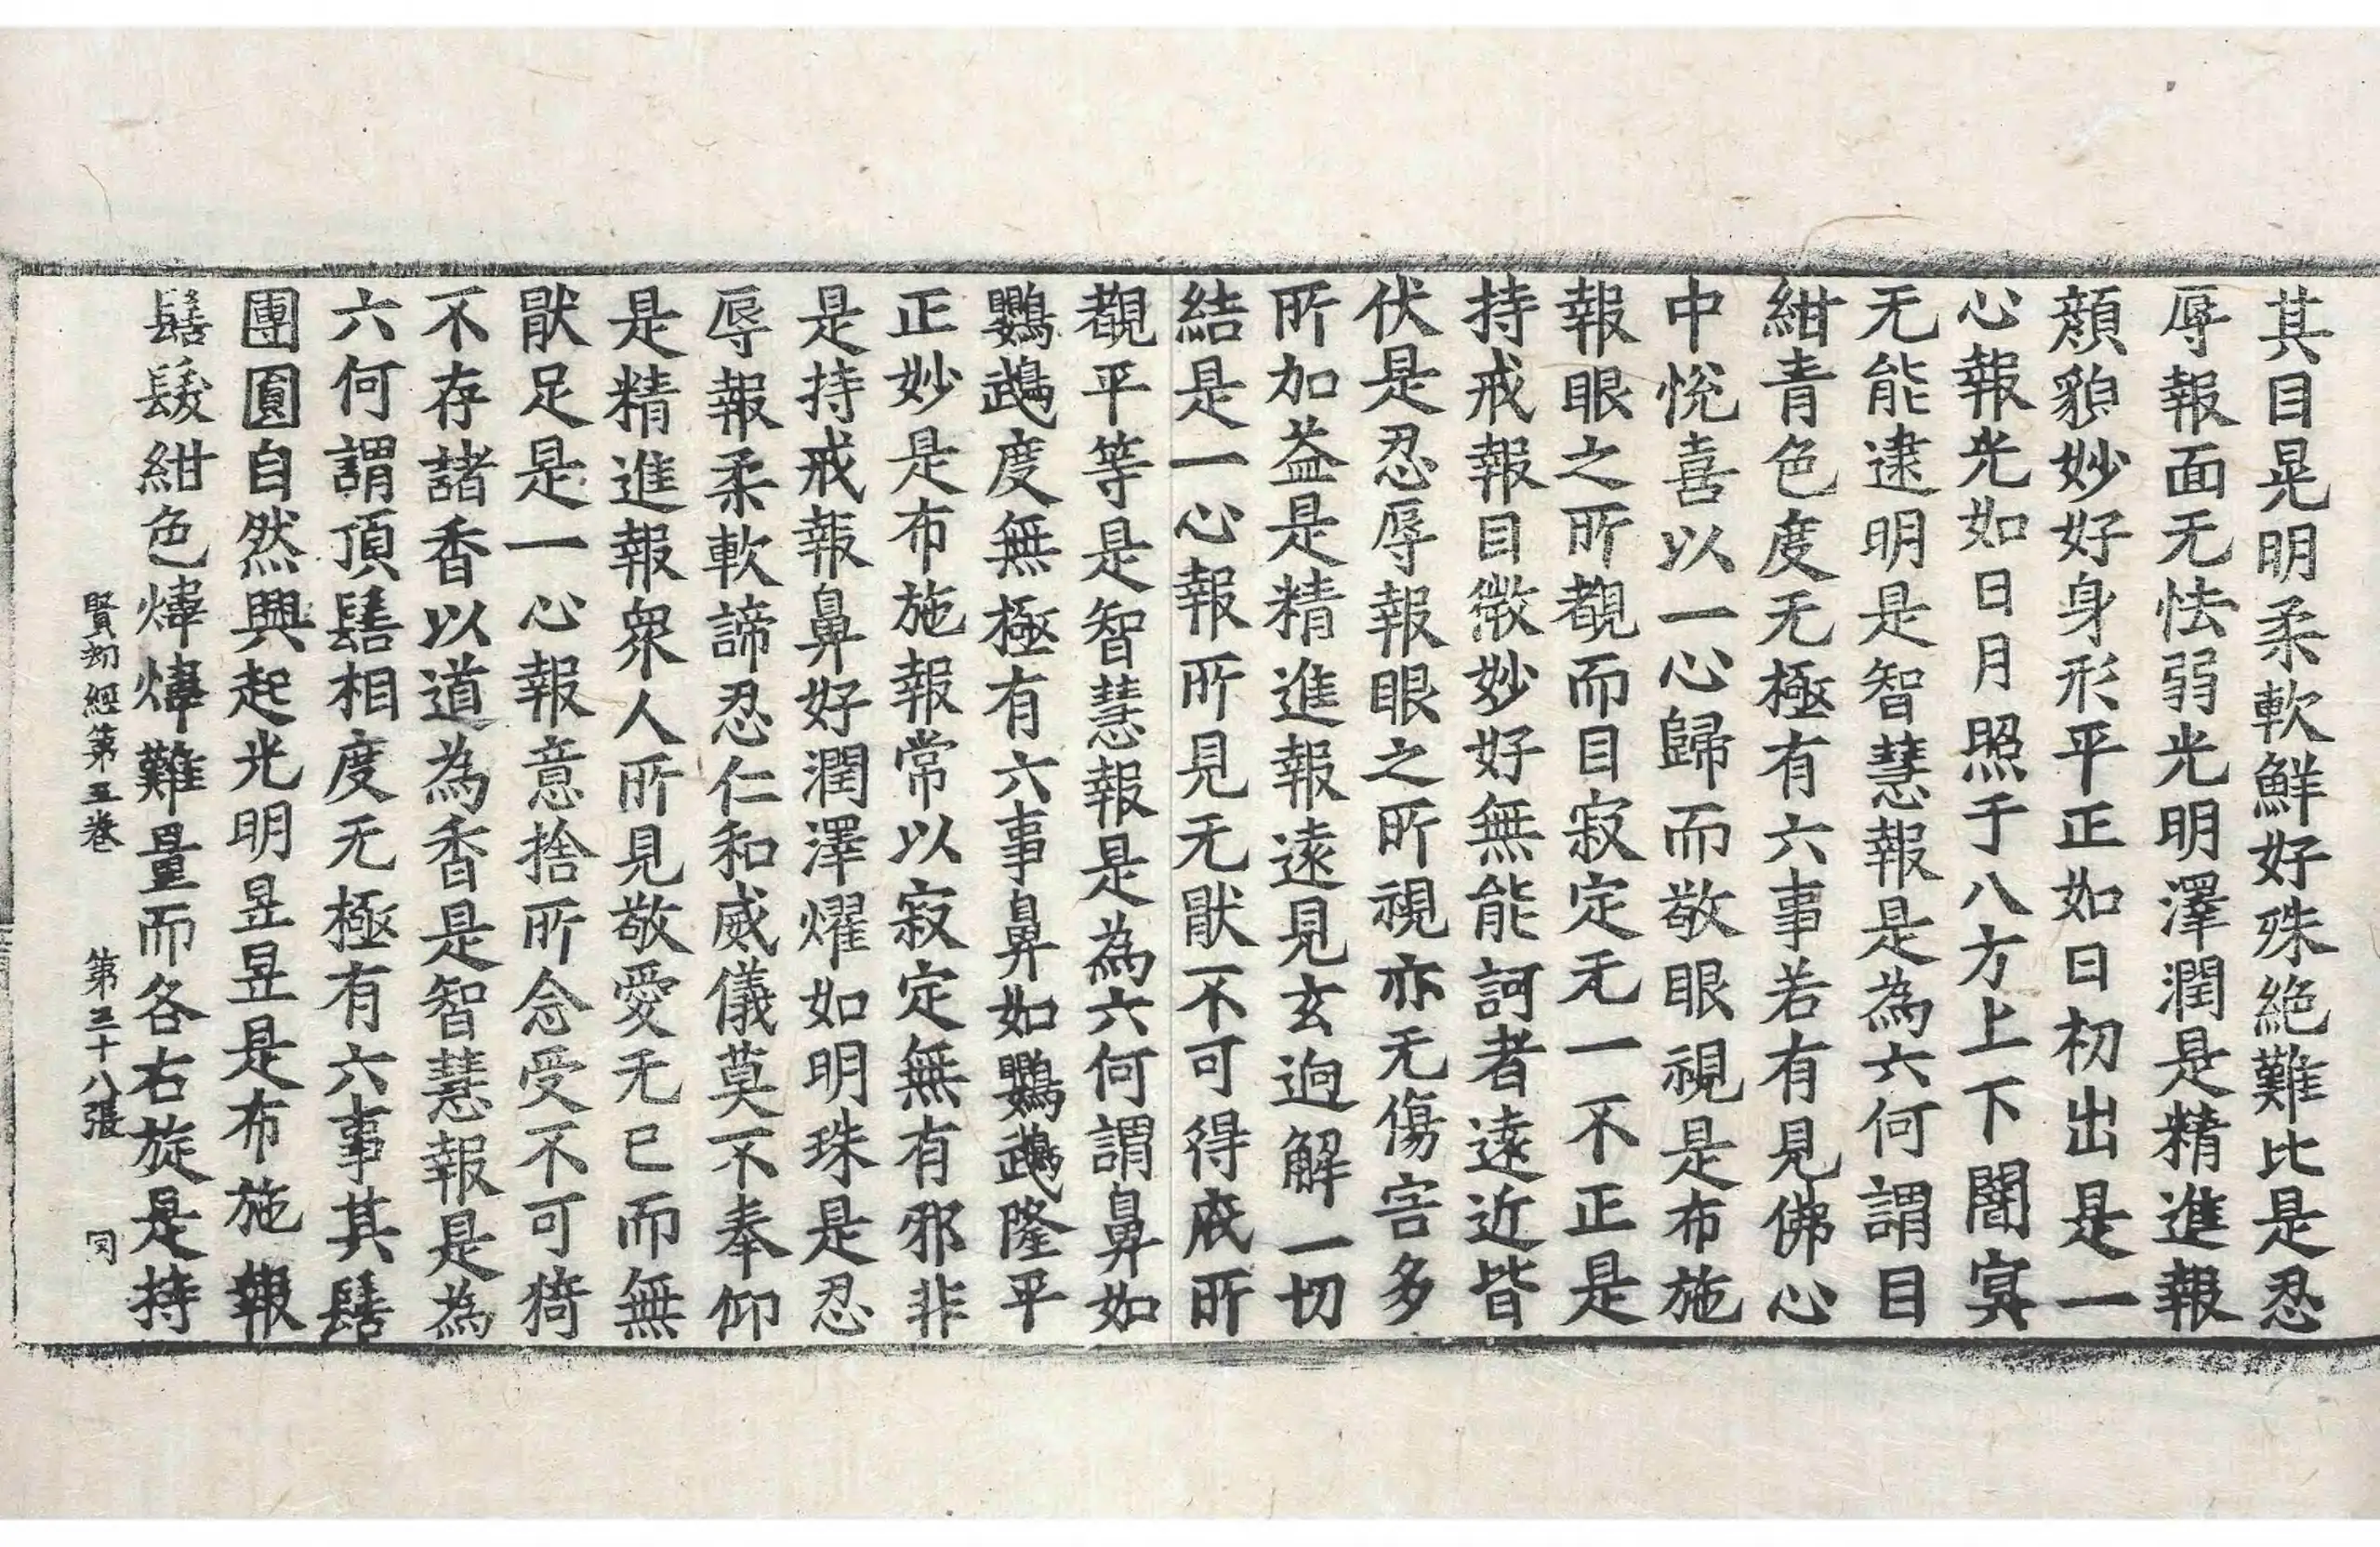 其目晃明柔軟鮮好殊絶難比是忍
辱報面无怯弱光明澤潤是精進報
顏貌妙好身形平正如日初出是一
心報光如日月照于八方上下闇冥
无能逮明是智慧報是為六何謂目
紺青色度无極有六事若有見佛心
中悅喜以一心歸而敬眼視是布施
報眼之所覩而目寂定无一不正是
持戒報目微妙好無能訶者遠近皆
伏是忍辱報眼之所視亦无傷害多
所加益是精進報遠見玄逈解一切
結是一心報所見无猒不可得底所
覩平等是智慧報是為六何謂鼻如
鸚鵡度無極有六事鼻如鸚鵡隆平
正妙是布施報常以寂定無有邪非
是持戒報鼻好潤澤燿如明珠是忍
辱報柔軟諦忍仁和威儀莫不奉仰
是精進報衆人所見敬愛无已而無
猒足是一心報意捨所念受不可猗
不存諸香以道為香是智慧報是為
六何謂頂髻相度无極有六事其髻
團圓自然興起光明昱昱是布施報
髻髮紺色煒煒難量而各右旋是持
賢劫經第五卷 第三十八張 同